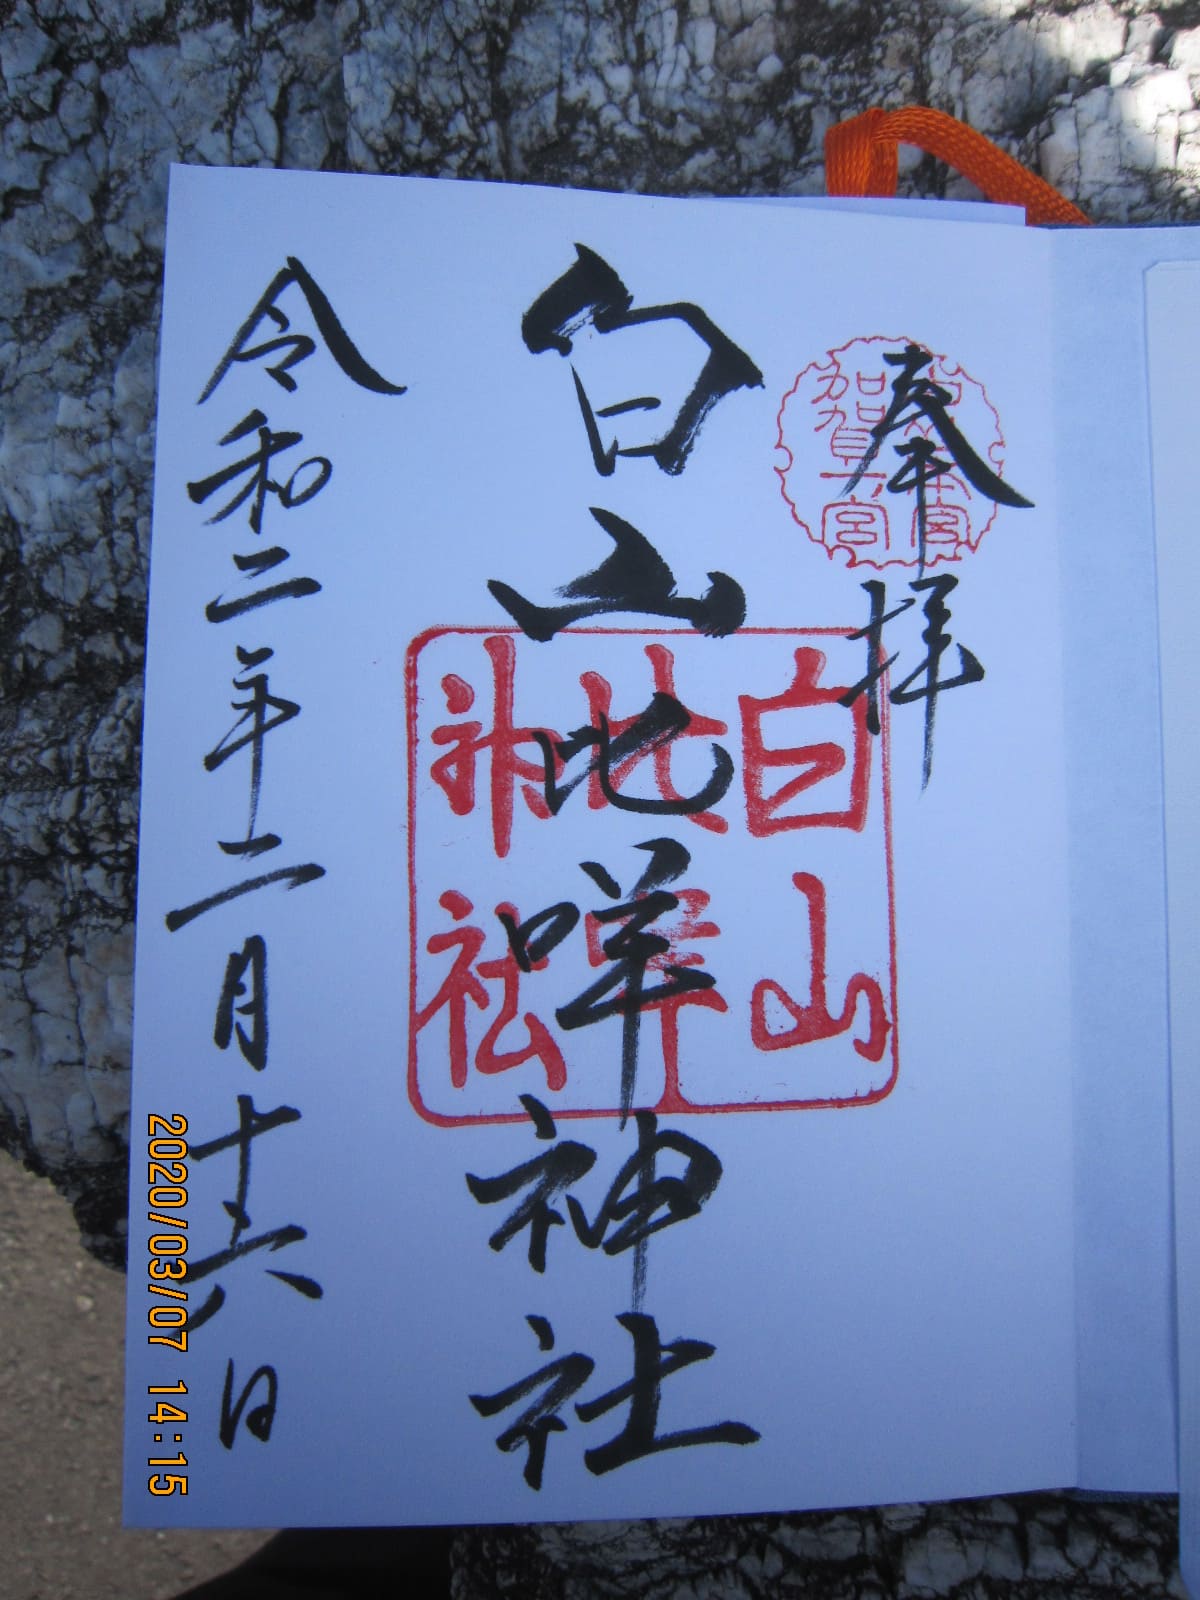 奉拝
白山比咩神社
令和二年二月十六日
白山
比咩
神社
加賀一宮
2020/03/07 14:15